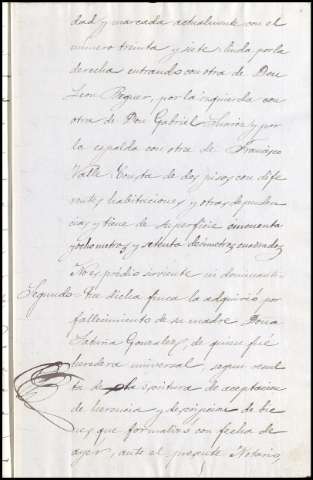 dad y marcada actualmente con el
número treinta y siete: linda por la
derecha entrando con otra de Don
Leon Peguer, por la izquierda con
otra de Don Gabriel Suarez y por
la espalda con otra de Francisco
Valle: Consta de dos pisos con dife
rentes habitaciones y otras dependen
cias y tiene de superficie cincuenta
y ocho metros y setenta decímetros cuadrados
No es predio sirviente ni dominante.
Segundo = La dicha finca la adquirió por
fallecimiento de su madre Doña
Gonzalez, de quien fué
heredera universal, segun resul
ta de escritura de aceptacion
de herencia y de bie
nes que formalizó con fecha de
ayer, ante el presente Notario,